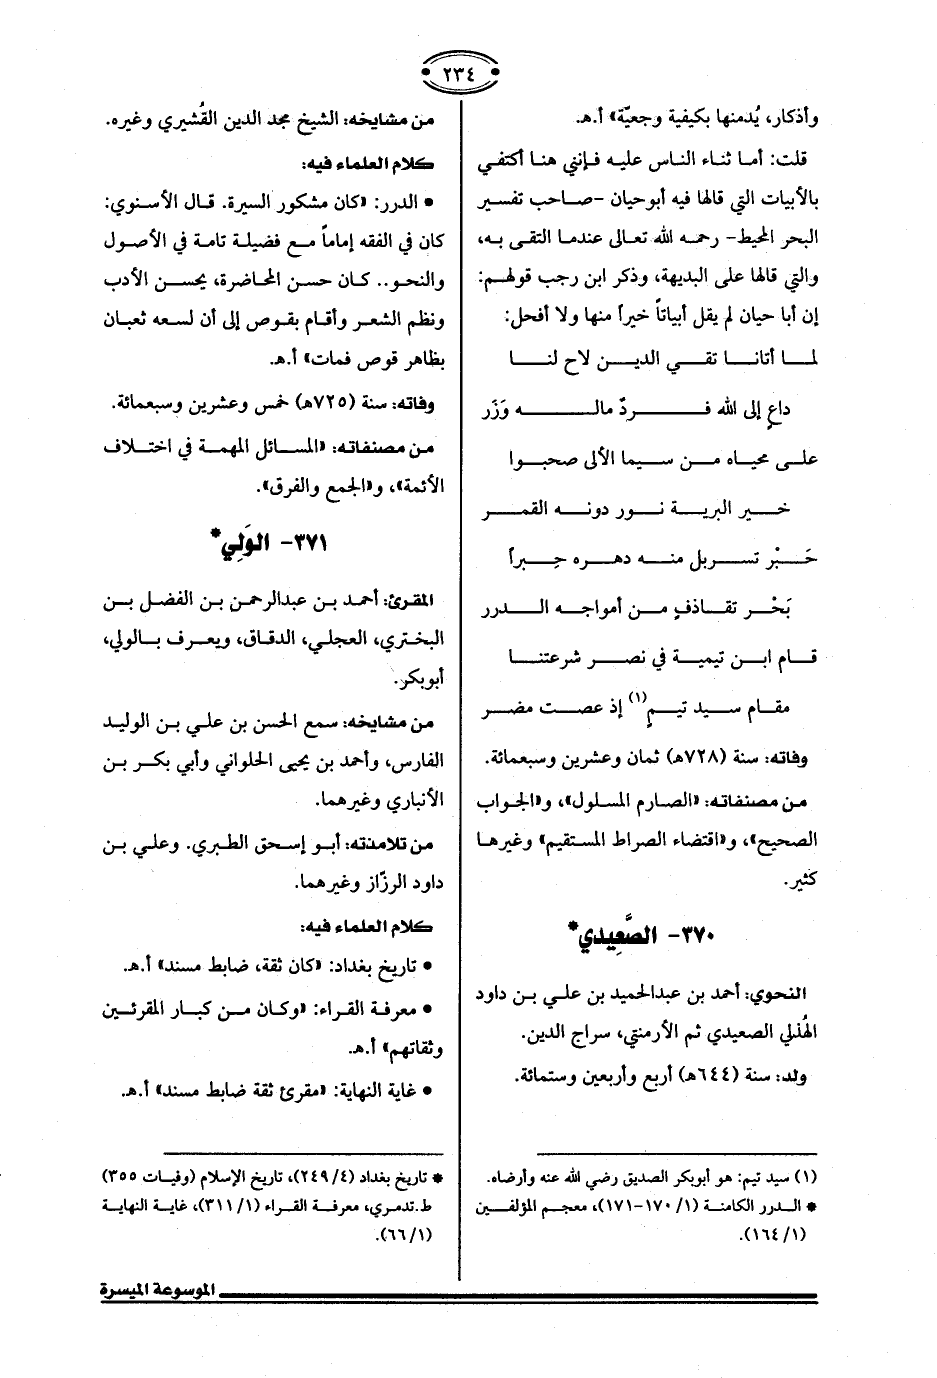 ٢٣٤
وأذكار، يُدمنها بكيفية وجعيّة» أ.هـ.
قلت: أما ثناء الناس عليه فإنني هنا أكتفي
بالأبيات التي قالها فيه أبوحيان -صاحب تفسير
البحر المحيط- رحمه الله تعالى عندما التقى به،
والتي قالها على البديهة، وذكر ابن رجب قولهم:
إن أبا حيان لم يقل أبياتاً خيراً منها ولا أفحل:
لمـا أتانـا تقـي الديـن لاح لنـا
داعٍ إلى الله فـردٌ مالـه وَزَر
علـى محياه مـن سـيما الألى صحبـوا
خـير البريـة نـور دونـه القمـر
حَـبْر تسـربل منـه دهـره حِـبراً
بَحْـر تقـاذفٍ مـن أمواجـه الـدرر
قـام ابـن تيميـة في نصـر شرعتنـا
مقـام سـيد تيـمٍ(١) إذ عصـت مضـر
وفاته: سنة (٧٢٨هـ) ثمان وعشرين وسبعمائة.
من مصنفاته: «الصارم المسلول»، و«الجواب
الصحيح»، و«اقتضاء الصراط المستقيم» وغيرها
كثير.
٣٧٠- الصَّعِيدي*
النحوي: أحمد بن عبدالحميد بن علي بن داود
الهُذلي الصعيدي ثم الأرمنتي، سراج الدين.
ولد: سنة (٦٤٤هـ) أربع وأربعين وستمائة.
(١) سيد تيم: هو أبوبكر الصديق رضي الله عنه وأرضاه.
* الـدرر الكامنـة (١/ ١٧٠-١٧١)، معجـم المؤلفـين
(١/ ١٦٤).
من مشايخه: الشيخ مجد الدين القُشيري وغيره.
كلام العلماء فيه:
• الدرر: «كان مشكور السيرة. قال الأسنوي:
كان في الفقه إماماً مع فضيلة تامة في الأصول
والنحو.. كـان حسن المحاضرة، يحسـن الأدب
ونظم الشعر وأقام بقوص إلى أن لسعه ثعبان
بظاهر قوص فمات» أ.هـ.
وفاته: سنة (٧٢٥هـ) خمس وعشرين وسبعمائة.
من مصنفاته: «المسـائل المهمـة في اختـلاف
الأئمة»، و«الجمع والفرق».
٣٧١- الوَلِي*
المقرئ: أحمد بن عبدالرحمن بن الفضل بـن
البختري، العجلي، الدقاق، ويعـرف بـالولي،
أبوبكر.
من مشايخه: سمع الحسن بن علي بن الوليد
الفارس، وأحمد بن يحيى الحلواني وأبي بكـر بـن
الأنباري وغيرهما.
من تلامذته: أبو إسحق الطبري. وعلي بن
داود الرزّاز وغيرهما.
كلام العلماء فيه:
• تاريخ بغداد: «كان ثقة، ضابط مسند» أ.هـ.
• معرفة القراء: «وكـان مـن كبـار المقرئـين
وثقاتهم» أ.هـ.
• غاية النهاية: «مقرئ ثقة ضابط مسند» أ.هـ.
* تاريخ بغداد (٤/ ٢٤٩)، تاريخ الإسلام (وفيات ٣٥٥)
ط.تدمري، معرفة القراء (١/ ٣١١)، غاية النهاية
(١/ ٦٦).
الموسوعة الميسرة